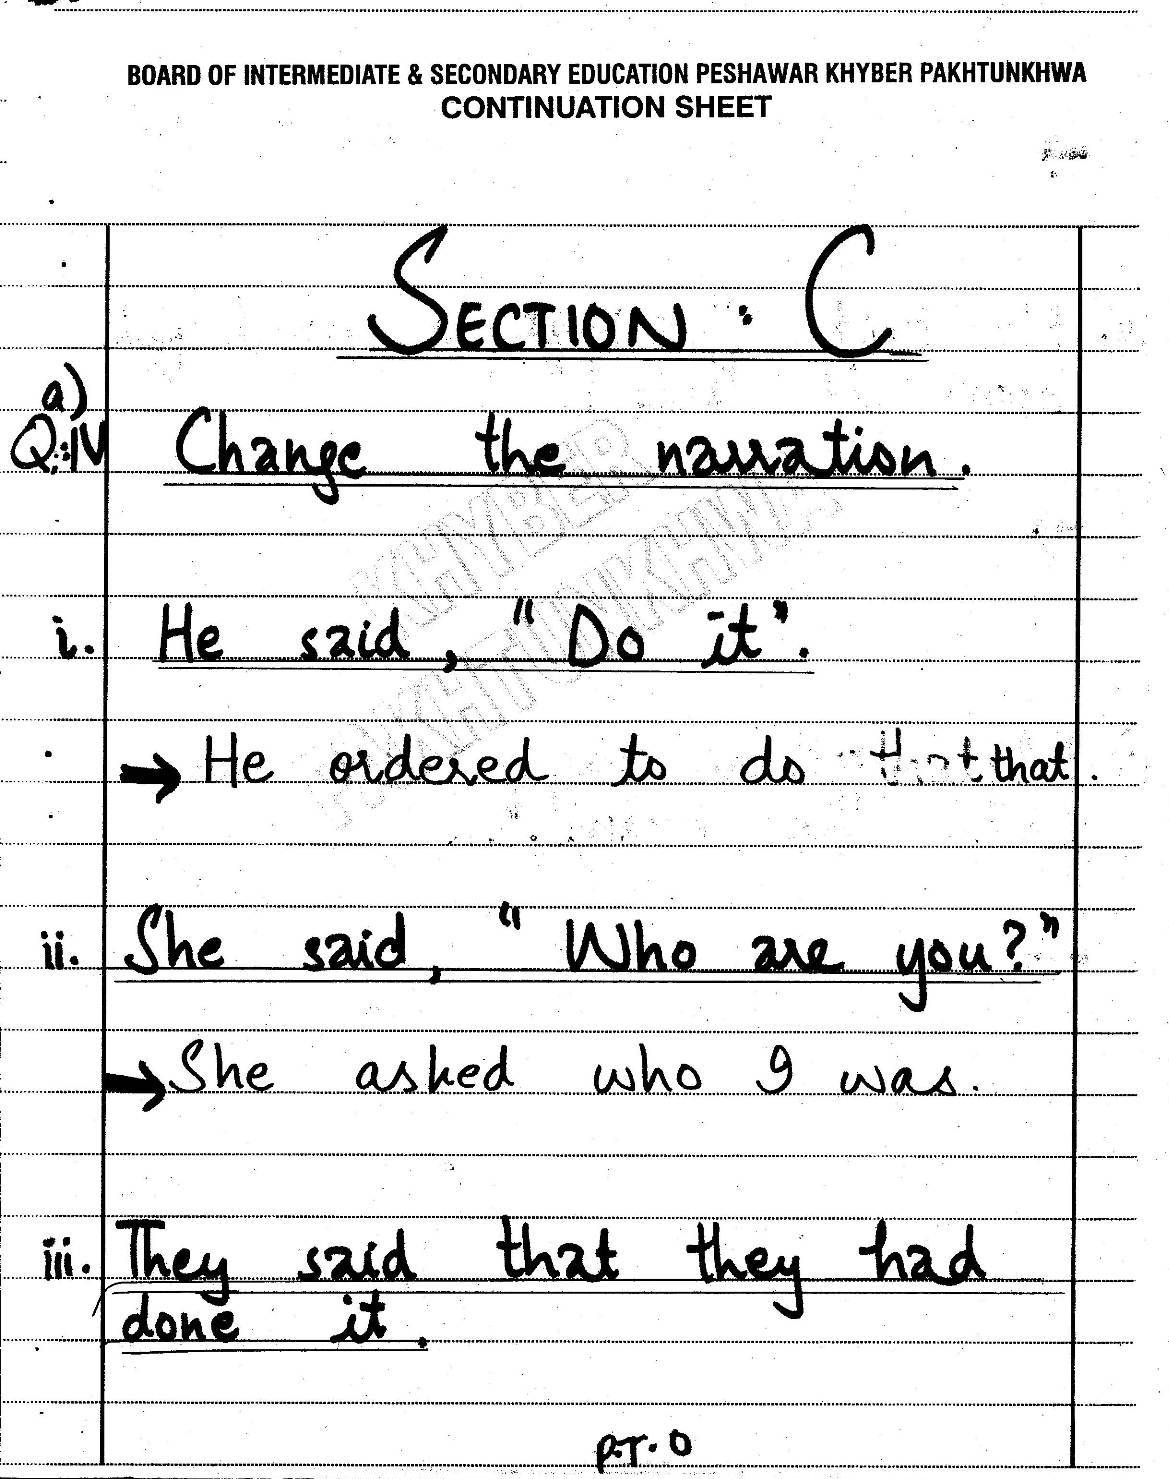 BOARD OF INTERMEDIATE & SECONDARY EDUCATION PESHAWAR KHYBER PAKHTUNKHWA
CONTINUATION SHEET
SECTION : C
a)
Q:IV Change the narration.
KHYBER
PAKHTUNKHWA
i. He said, "Do it".
→ He ordered to do that that.
ii. She said, "Who are you?"
→ She asked who I was.
iii. They said that they had
done it.
P.T.O